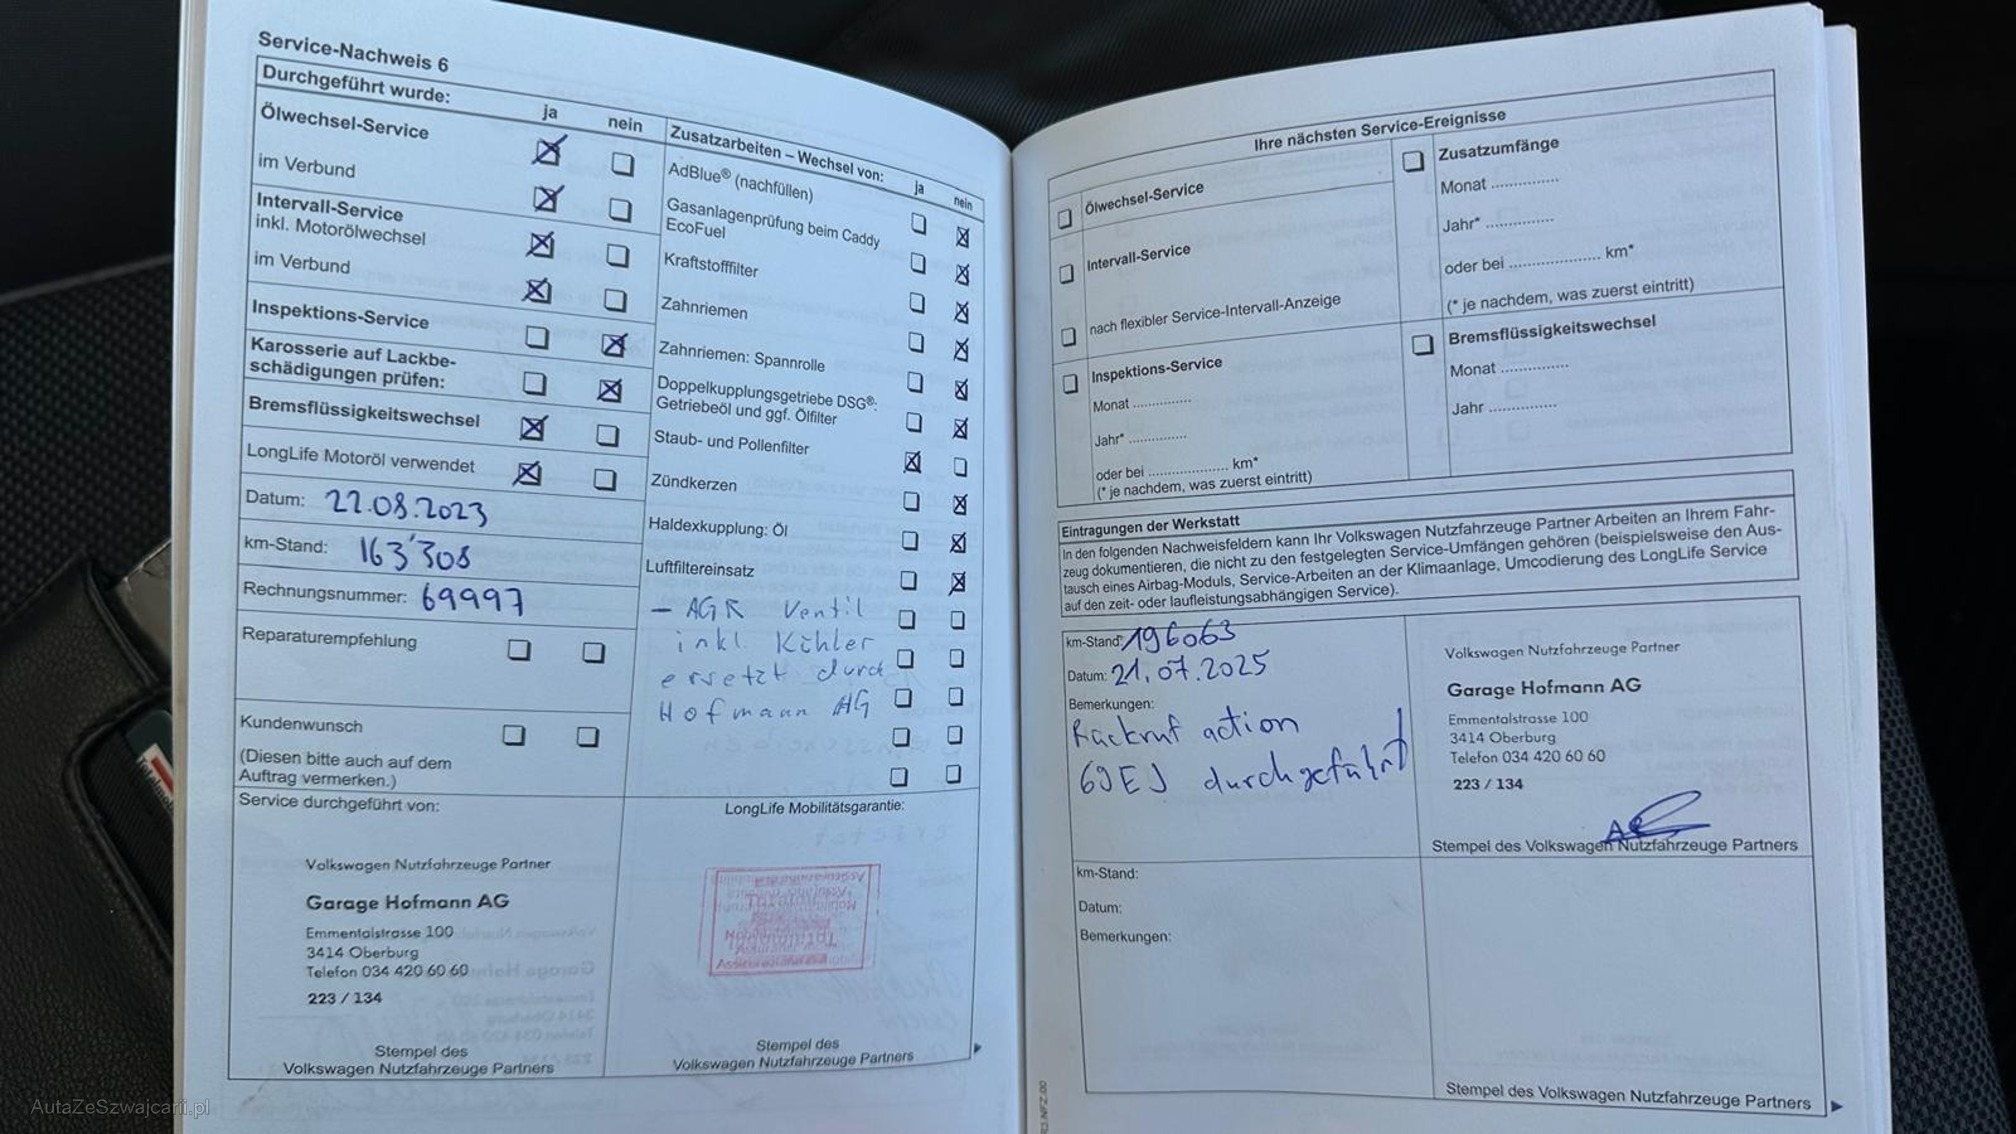 Service-Nachweis 6
Durchgeführt wurde:
ja
nein
Ölwechsel-Service
im Verbund
Intervall-Service
inkl. Motorölwechsel
im Verbund
Inspektions-Service
Karosserie auf Lackbe-
schädigungen prüfen:
Bremsflüssigkeitswechsel
LongLife Motoröl verwendet
Datum: 22.08.2023
km-Stand: 163'308
Rechnungsnummer: 69997
Reparaturempfehlung
Kundenwunsch
(Diesen bitte auch auf dem
Auftrag vermerken.)
Service durchgeführt von:
Volkswagen Nutzfahrzeuge Partner
Garage Hofmann AG
Emmentalstrasse 100
3414 Oberburg
Telefon 034 420 60 60
223 / 134
Stempel des
Volkswagen Nutzfahrzeuge Partners
Zusatzarbeiten – Wechsel von:
ja
nein
AdBlue® (nachfüllen)
Gasanlagenprüfung beim Caddy
EcoFuel
Kraftstofffilter
Zahnriemen
Zahnriemen: Spannrolle
Doppelkupplungsgetriebe DSG®:
Getriebeöl und ggf. Ölfilter
Staub- und Pollenfilter
Zündkerzen
Haldexkupplung: Öl
Luftfiltereinsatz
– AGR Ventil
inkl. Kühler
ersetzt durch
Hofmann AG
LongLife Mobilitätsgarantie:
Totalmobil
Stempel des
Volkswagen Nutzfahrzeuge Partners
Ihre nächsten Service-Ereignisse
Ölwechsel-Service
Intervall-Service
nach flexibler Service-Intervall-Anzeige
Inspektions-Service
Monat ...............
Jahr* ...............
oder bei .................... km*
(* je nachdem, was zuerst eintritt)
Zusatzumfänge
Monat ...............
Jahr* ...............
oder bei .................... km*
(* je nachdem, was zuerst eintritt)
Bremsflüssigkeitswechsel
Monat ...............
Jahr ...............
Eintragungen der Werkstatt
In den folgenden Nachweisfeldern kann Ihr Volkswagen Nutzfahrzeuge Partner Arbeiten an Ihrem Fahr-
zeug dokumentieren, die nicht zu den festgelegten Service-Umfängen gehören (beispielsweise den Aus-
tausch eines Airbag-Moduls, Service-Arbeiten an der Klimaanlage, Umcodierung des LongLife Service
auf den zeit- oder laufleistungsabhängigen Service).
km-Stand: 196063
Datum: 21.07.2025
Bemerkungen:
Rückruf action
69EJ durchgeführt
Volkswagen Nutzfahrzeuge Partner
Garage Hofmann AG
Emmentalstrasse 100
3414 Oberburg
Telefon 034 420 60 60
223 / 134
Stempel des Volkswagen Nutzfahrzeuge Partners
km-Stand:
Datum:
Bemerkungen:
Stempel des Volkswagen Nutzfahrzeuge Partners
AutaZeSzwajcarii.pl